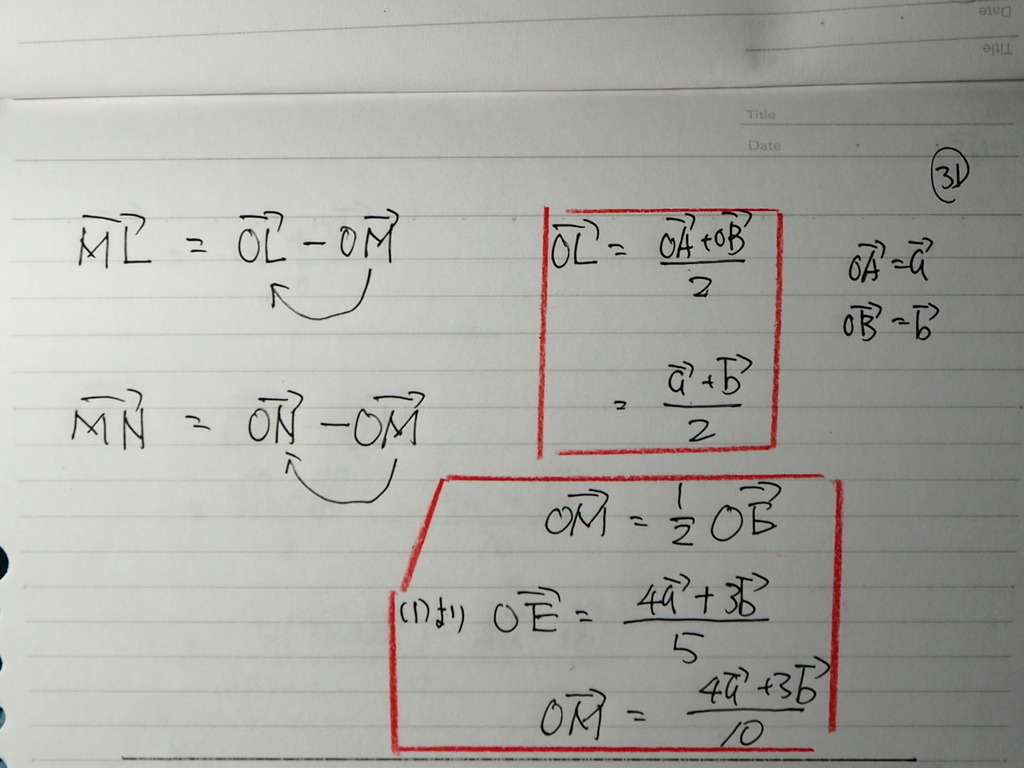 Title
Date
Title
Date
㉛
ML→ = OL→ - OM→
MN→ = ON→ - OM→
OL→ = (OA→ + OB→)/2
= (a→ + b→)/2
OA→ = a→
OB→ = b→
OM→ = 1/2 OE→
(1)より OE→ = (4a→ + 3b→)/5
OM→ = (4a→ + 3b→)/10